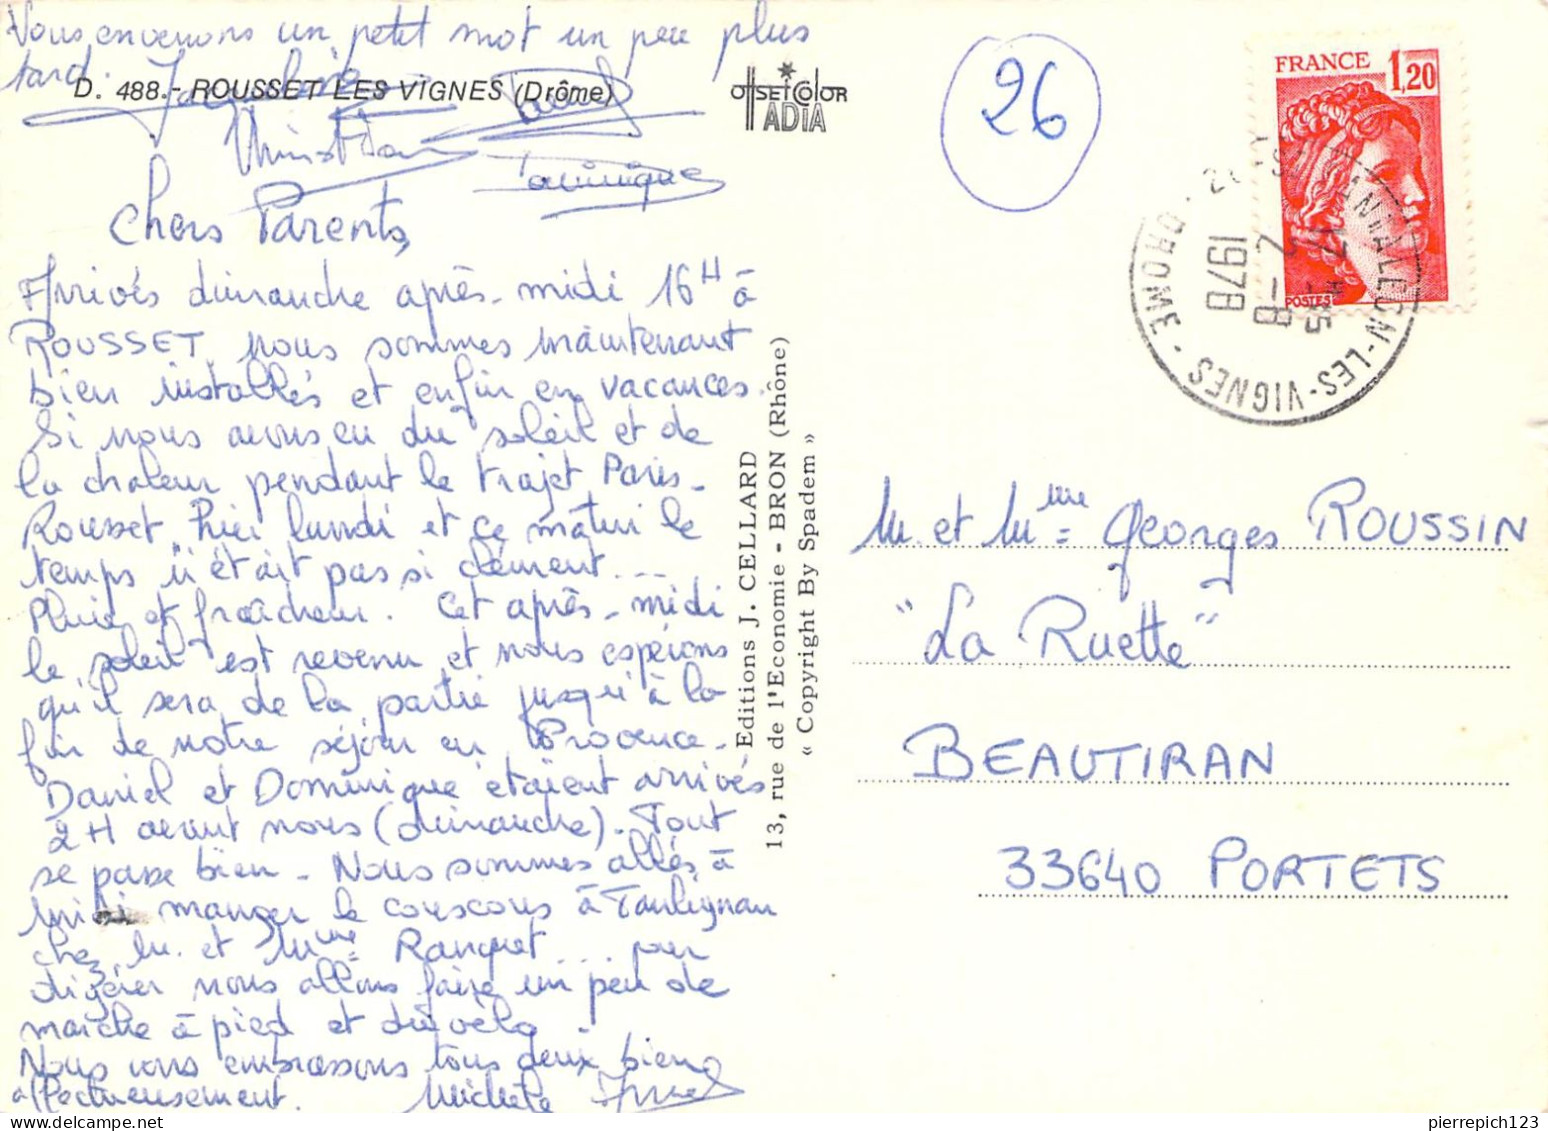 Vous enverrons un petit mot un peu plus
tard.
D. 488.- ROUSSET LES VIGNES (Drôme)
OffSETCOlOR
ADIA
Christian
Dominique
26
FRANCE 1,20
POSTES
17 H 45
2 - 8
1978
PANTALEON-LES-VIGNES - DROME
Chers Parents,
Arrivés dimanche après-midi 16H à
ROUSSET nous sommes maintenant
bien installés et enfin en vacances.
Si nous avons eu du soleil et de
la chaleur pendant le trajet Paris-
Rousset, hier lundi et ce matin le
temps n'était pas si clément....
Pluie et fraîcheur. Cet après-midi
le soleil est revenu et nous espérons
qu'il sera de la partie jusqu'à la
fin de notre séjour en Provence.
Daniel et Dominique étaient arrivés
2H avant nous (dimanche). Tout
se passe bien. Nous sommes allés à
midi manger le couscous à Taulignan
chez M. et Mme Ranquet.... pour
digérer nous allons faire un peu de
marche à pied et du vélo.
Nous vous embrassons tous deux bien
affectueusement. Michèle
Editions J. CELLARD
13, rue de l'Economie - BRON (Rhône)
« Copyright By Spadem »
M et Mme Georges ROUSSIN
"La Ruette"
BEAUTIRAN
33640 PORTETS
pierrepich123